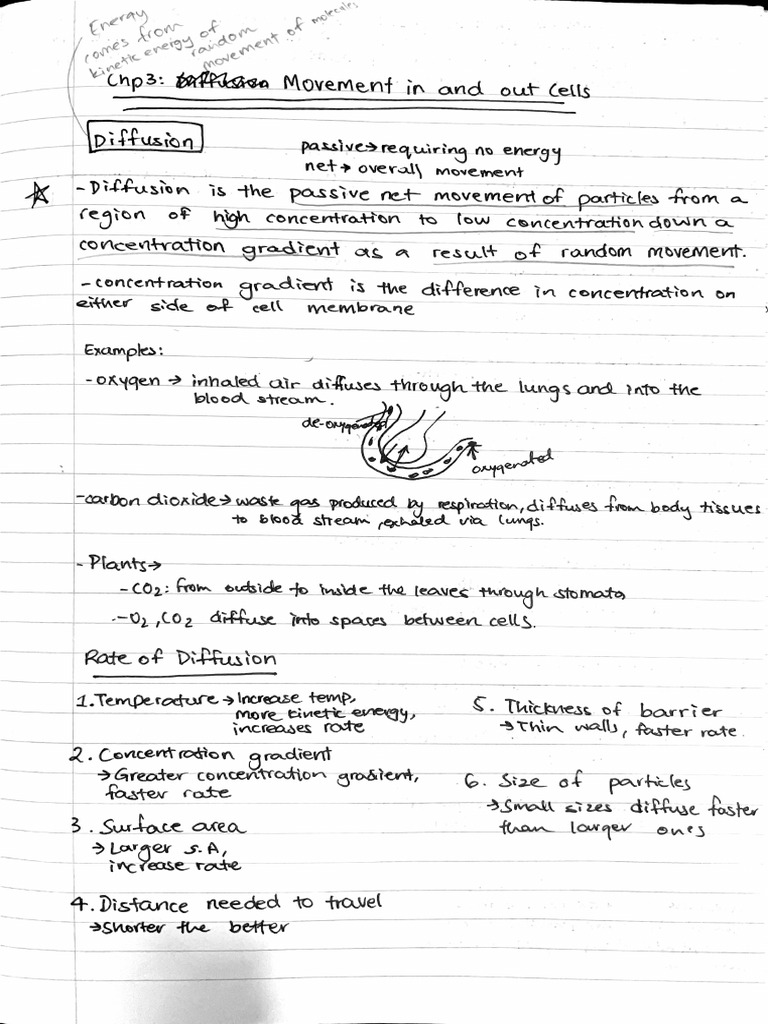 Energy
comes from
kinetic energy of
random
movement of molecules
Chp3: Diffusion Movement in and out Cells
Diffusion
passive→requiring no energy
net→overall movement
-Diffusion is the passive net movement of particles from a
region of high concentration to low concentration down a
concentration gradient as a result of random movement.
-concentration gradient is the difference in concentration on
either side of cell membrane
Examples:
-oxygen → inhaled air diffuses through the lungs and into the
blood stream.
de-oxygenated
oxygenated
-carbon dioxide→waste gas produced by respiration, diffuses from body tissues
to blood stream, exhaled via lungs.
-Plants→
-CO2: from outside to inside the leaves through stomata
-O2, CO2 diffuse into spaces between cells.
Rate of Diffusion
1. Temperature→Increase temp,
more kinetic energy,
increases rate
2. Concentration gradient
→Greater concentration gradient,
faster rate
3. Surface area
→Larger S.A,
increase rate
4. Distance needed to travel
→shorter the better
5. Thickness of barrier
→Thin walls, faster rate.
6. Size of particles
→Small sizes diffuse faster
than larger ones